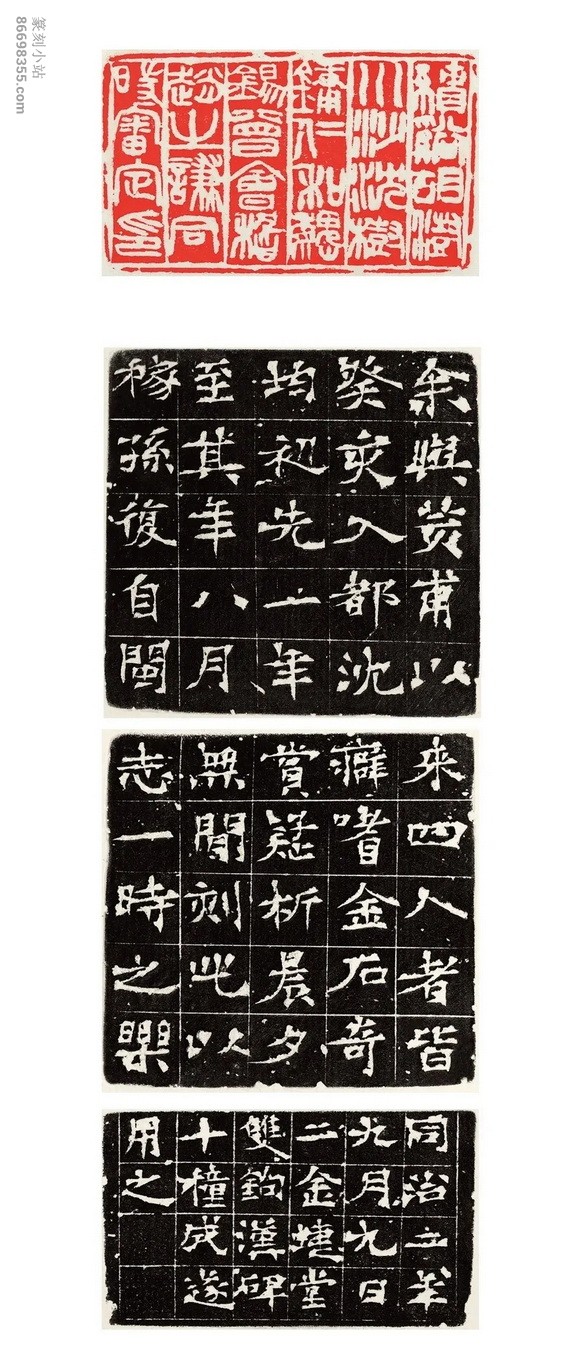 篆刻小站
86698355.com
績谿胡澍
川沙沈樹
鏞仁和魏
錫曾會稽
趙之謙同
時審定印
余與荄甫以
癸亥入都沈
均初先一年
至其年八月
稼孫復自閩
來四人者皆
癖嗜金石奇
賞疑析晨夕
無閒刻此以
志一時之樂
同治二年
九月九日
二金蜨堂
雙鉤漢碑
十種成遂
用之